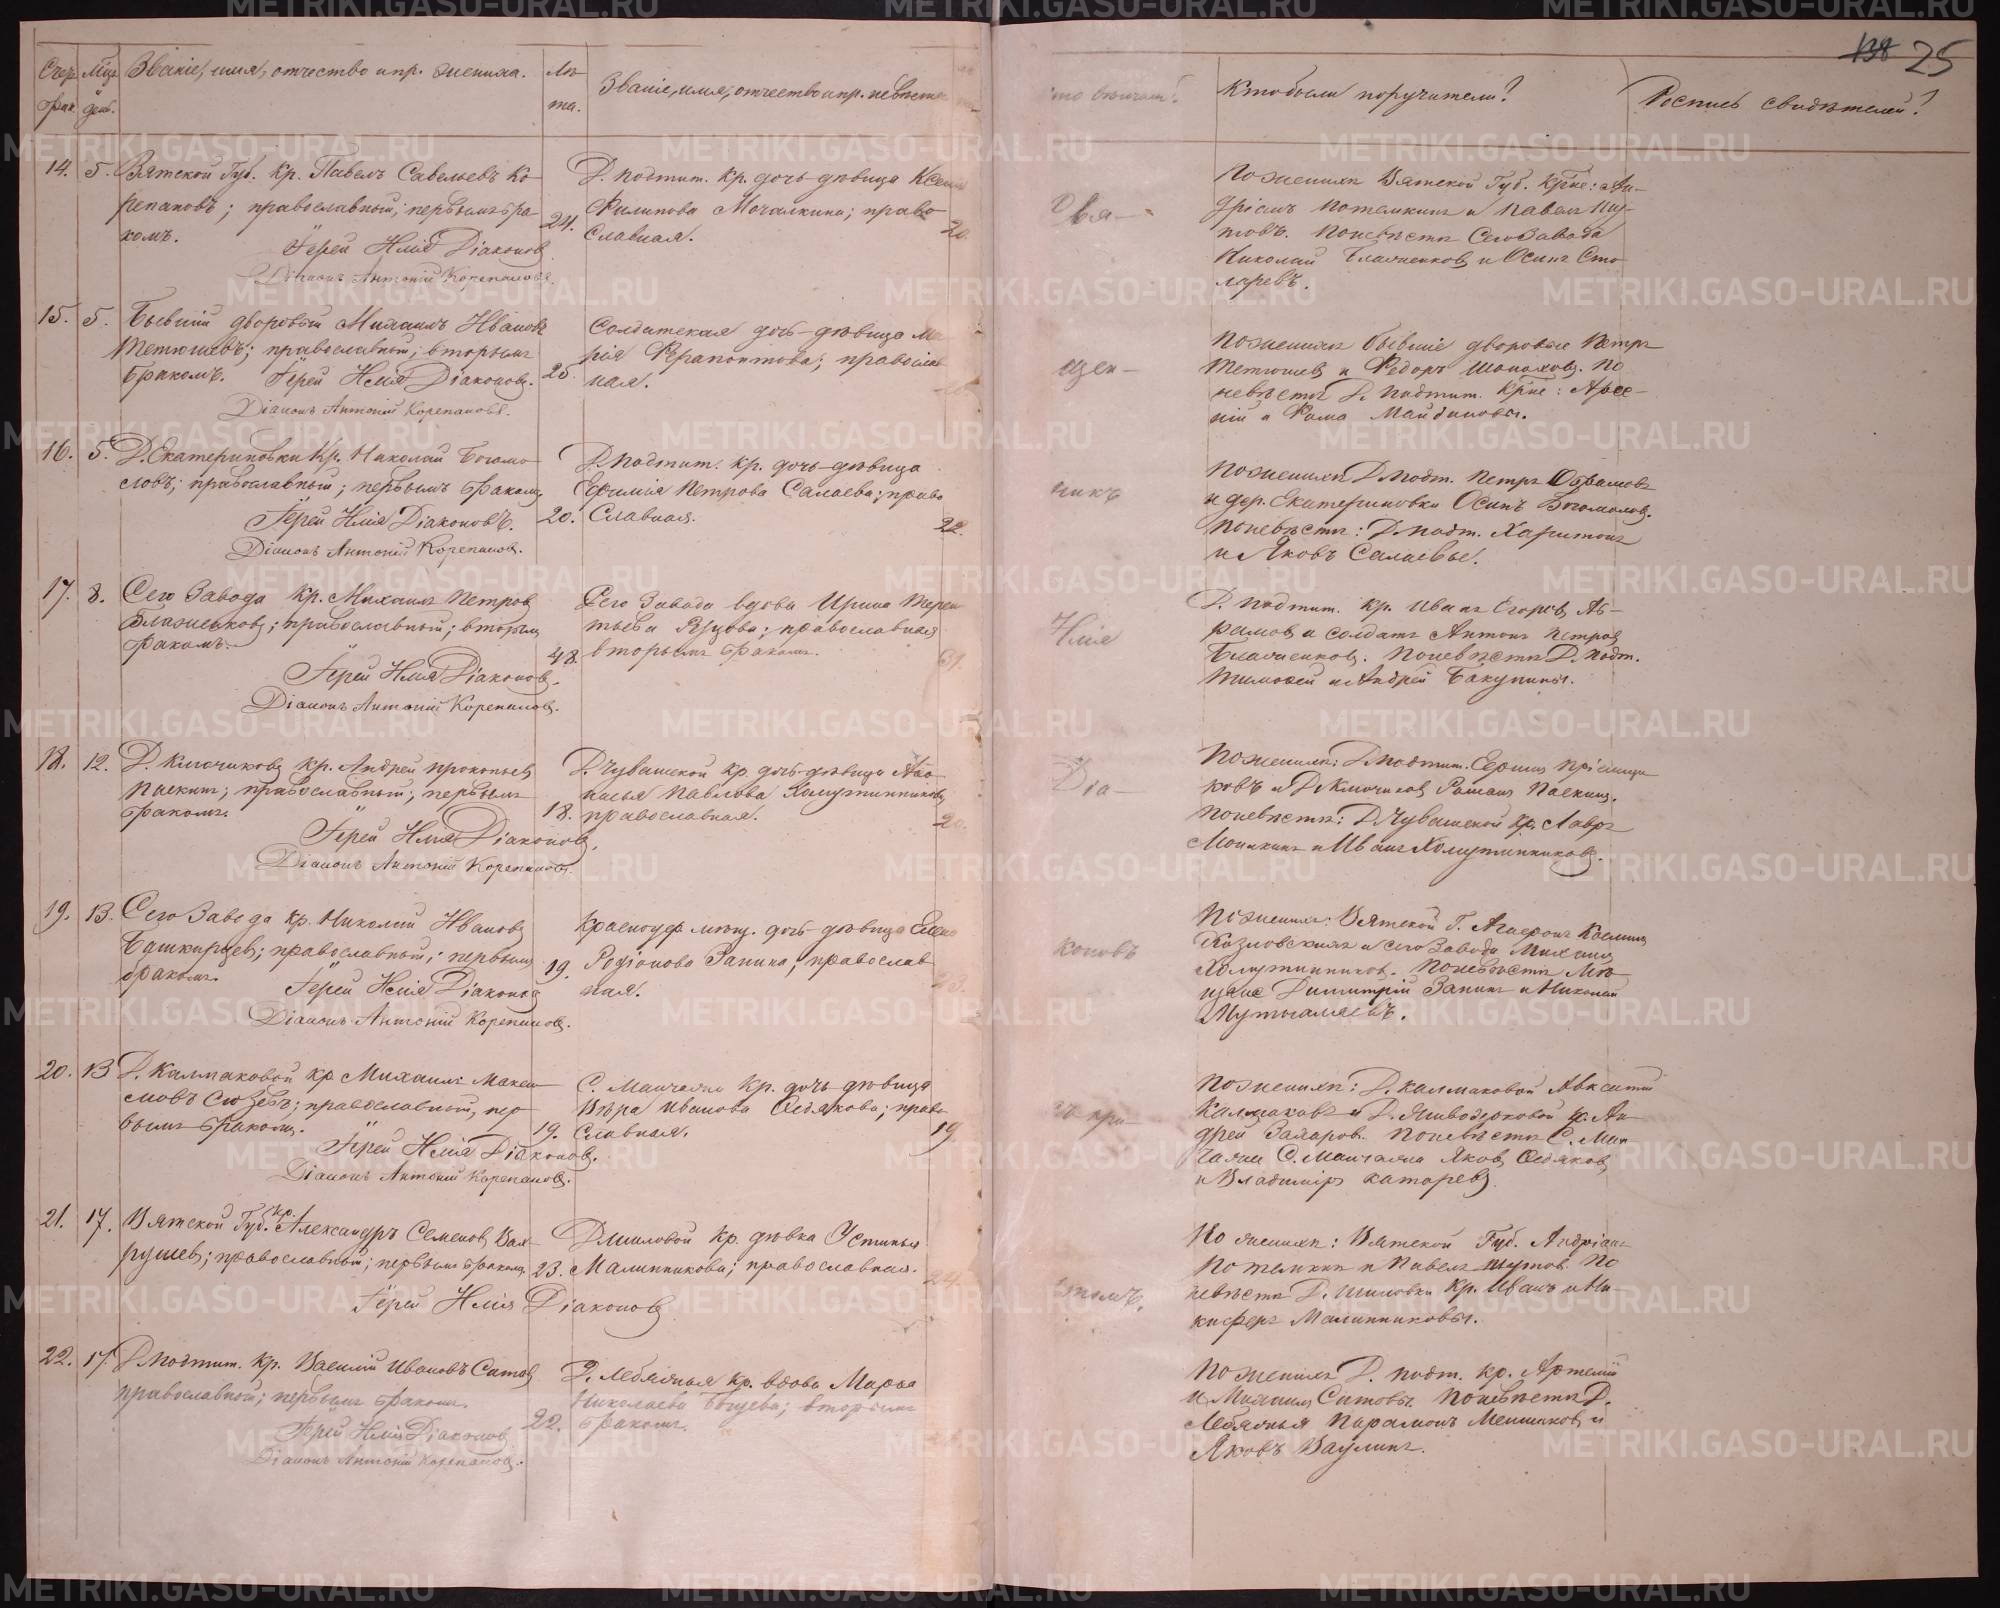 Счет брак.
Мѣц. и день.
Званіе, имя, отчество и пр. жениха.
Лѣта.
Званіе, имя, отчество и пр. невѣсты
Кто вѣнчалъ?
Кто были поручители?
Роспись свидѣтелей?
138 25
14. 5. Вятской Губ. кр. Павелъ Савельевъ Ко-
репановъ; православный; первымъ бра-
комъ.
24.
Іерей Илія Діаконов
Діаконъ Антоній Корепановъ.
Д. подтит. кр. дочь-дѣвица Ксенія
Филипова Мочалкина; право-
славная.
20.
Свя-
По женихѣ Вятской Губ. Крѣне: Ан-
дріанъ Потемкинъ и Павелъ Шу-
товъ. По невѣстѣ Сего Завода
Николай Блаженков и Осипъ Сто-
ляревъ.
15. 5. Бывшій дворовый Михаилъ Иванов
Тетюшевъ; православный; вторымъ
бракомъ. Іерей Илія Діаконов.
25.
Діаконъ Антоній Корепановъ.
Солдатская дочь-дѣвица Ма-
рія Ферапонтова; православ-
ная.
щен-
По женихѣ бывшіе дворовые Петръ
Тетюшев и Федоръ По
невѣстѣ Д. подтит. Крѣне: Арсе-
ній и Фома Майдановы.
16. 5. Д. Екатериновки Кр. Николай Богомо-
ловъ; православный; первымъ бракомъ
20.
Іерей Илія Діаконовъ.
Діаконъ Антоній Корепанов.
Д. подтит. кр. дочь-дѣвица
Ефимія Петрова Салаева; право
славная.
22.
никъ
По женихѣ Д. подт. Петръ Абрамовъ
и дер. Екатериновки Осипъ Богомолов.
По невѣстѣ: Д. подт. Харитонъ
и Яковъ Салаевы.
17. 8. Сего Завода кр. Михаилъ Петров
Блаженьков; православный; вторым
бракомъ.
48.
Іерей Илія Діаконов.
Діаконъ Антоній Корепанов.
Сего Завода вдова Ирина Терен-
тьева Язцова; православная
вторымъ бракомъ.
Илія
Д. подтит. кр. Иванъ Егоров Аб-
рамов и солдатъ Антонъ Петров
Блаженков. По невѣстѣ Д. подт.
Тимофей и Андрей Бакунины.
18. 12. Д. Ключиков кр. Андрей Прокопьев
Паскинъ; православный; первымъ
бракомъ.
18.
Іерей Илія Діаконов.
Діаконъ Антоній Корепанов.
Д. Чувашской кр. дочь-дѣвица Афо-
насья Павлова Хомутинникова
православная.
20.
Діа-
По женихѣ: Д. подтит.
ковъ и Д. Ключиков Романъ Паскин.
По невѣстѣ: Д. Чувашской Кр. Лавръ
и Иванъ Хомутинников.
19. 13. Сего Завода кр. Николай Иванов
Башкирцев; православный; первым
бракомъ.
19.
Іерей Илія Діаконов
Діаконъ Антоній Корепанов.
Красноуф. мѣщ. дочь-дѣвица Елена
Родіонова Запина; православ
ная.
коновъ
По женихѣ: Вятской Г.
Козловскихъ и сего Завода Михаил
Хомутинников. По невѣстѣ Мѣ-
щане Димитрій Запинъ и Николай
20. 13 Д. Калмаковой кр. Михаилъ Макси-
мовъ Сюзевъ; православный, пер-
вымъ бракомъ.
19.
Іерей Илія Діаконов.
Діаконъ Антоній Корепанов.
С. Манчажа Кр. дочь дѣвица
Вѣра Иванова Федякова; право
славная.
19
съ при-
По женихѣ: Д. Калмаковой
Калмаков и Ан-
дрей Захаров. По невѣстѣ С. Ман
С. Манчажа Яков Федяков
и Владимір
21. 17. Вятской Губ. кр. Александръ Семенов Вах-
рушев; православный; первым браком
23.
Іерей Илія Діаконов
Д. Шиловой Кр. дѣвка Устинья
Малинникова; православная.
24.
чтомъ.
По женихѣ: Вятской Губ. Андріанъ
Потемкин и Павелъ Шутов. По
невѣстѣ Д. Шиловки Кр. Иванъ и Ни-
кифоръ Малинниковы.
22. 17. Д. подтит. Кр. Василій Ивановъ Ситов
православной; первымъ бракомъ.
22.
Іерей Илія Діаконов
Діаконъ Антоній Корепанов.
Д. Лебяжья кр. вдова Марья
Николаева вторымъ
бракомъ.
По женихѣ Д. подт. кр. Артемій
и Михаил Ситовы. По невѣстѣ Д.
Лебяжья Парамонъ Меншиков и
Яковъ Ваулинъ.
METRIKI.GASO-URAL.RU